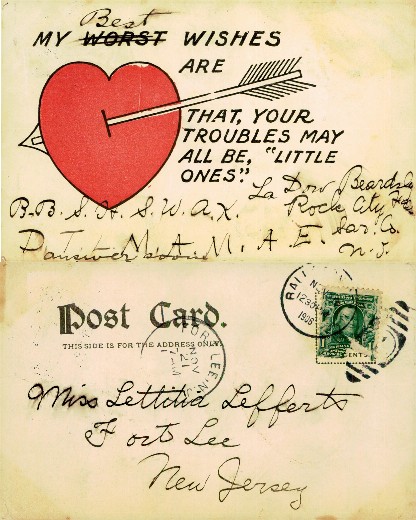 Best
MY WORST WISHES
ARE
THAT, YOUR
TROUBLES MAY
ALL BE, "LITTLE
ONES".
La Dow Beardsley
B.B. S. H. S. W. A. X. Rock City
M. A. M. A. E. Sar. Co.
N.J.
Post Card.
THIS SIDE IS FOR THE ADDRESS ONLY.
1906
FORT LEE N.J.
NOV
21
CENTS
Miss Lettitia Lefferts
Fort Lee
New Jersey